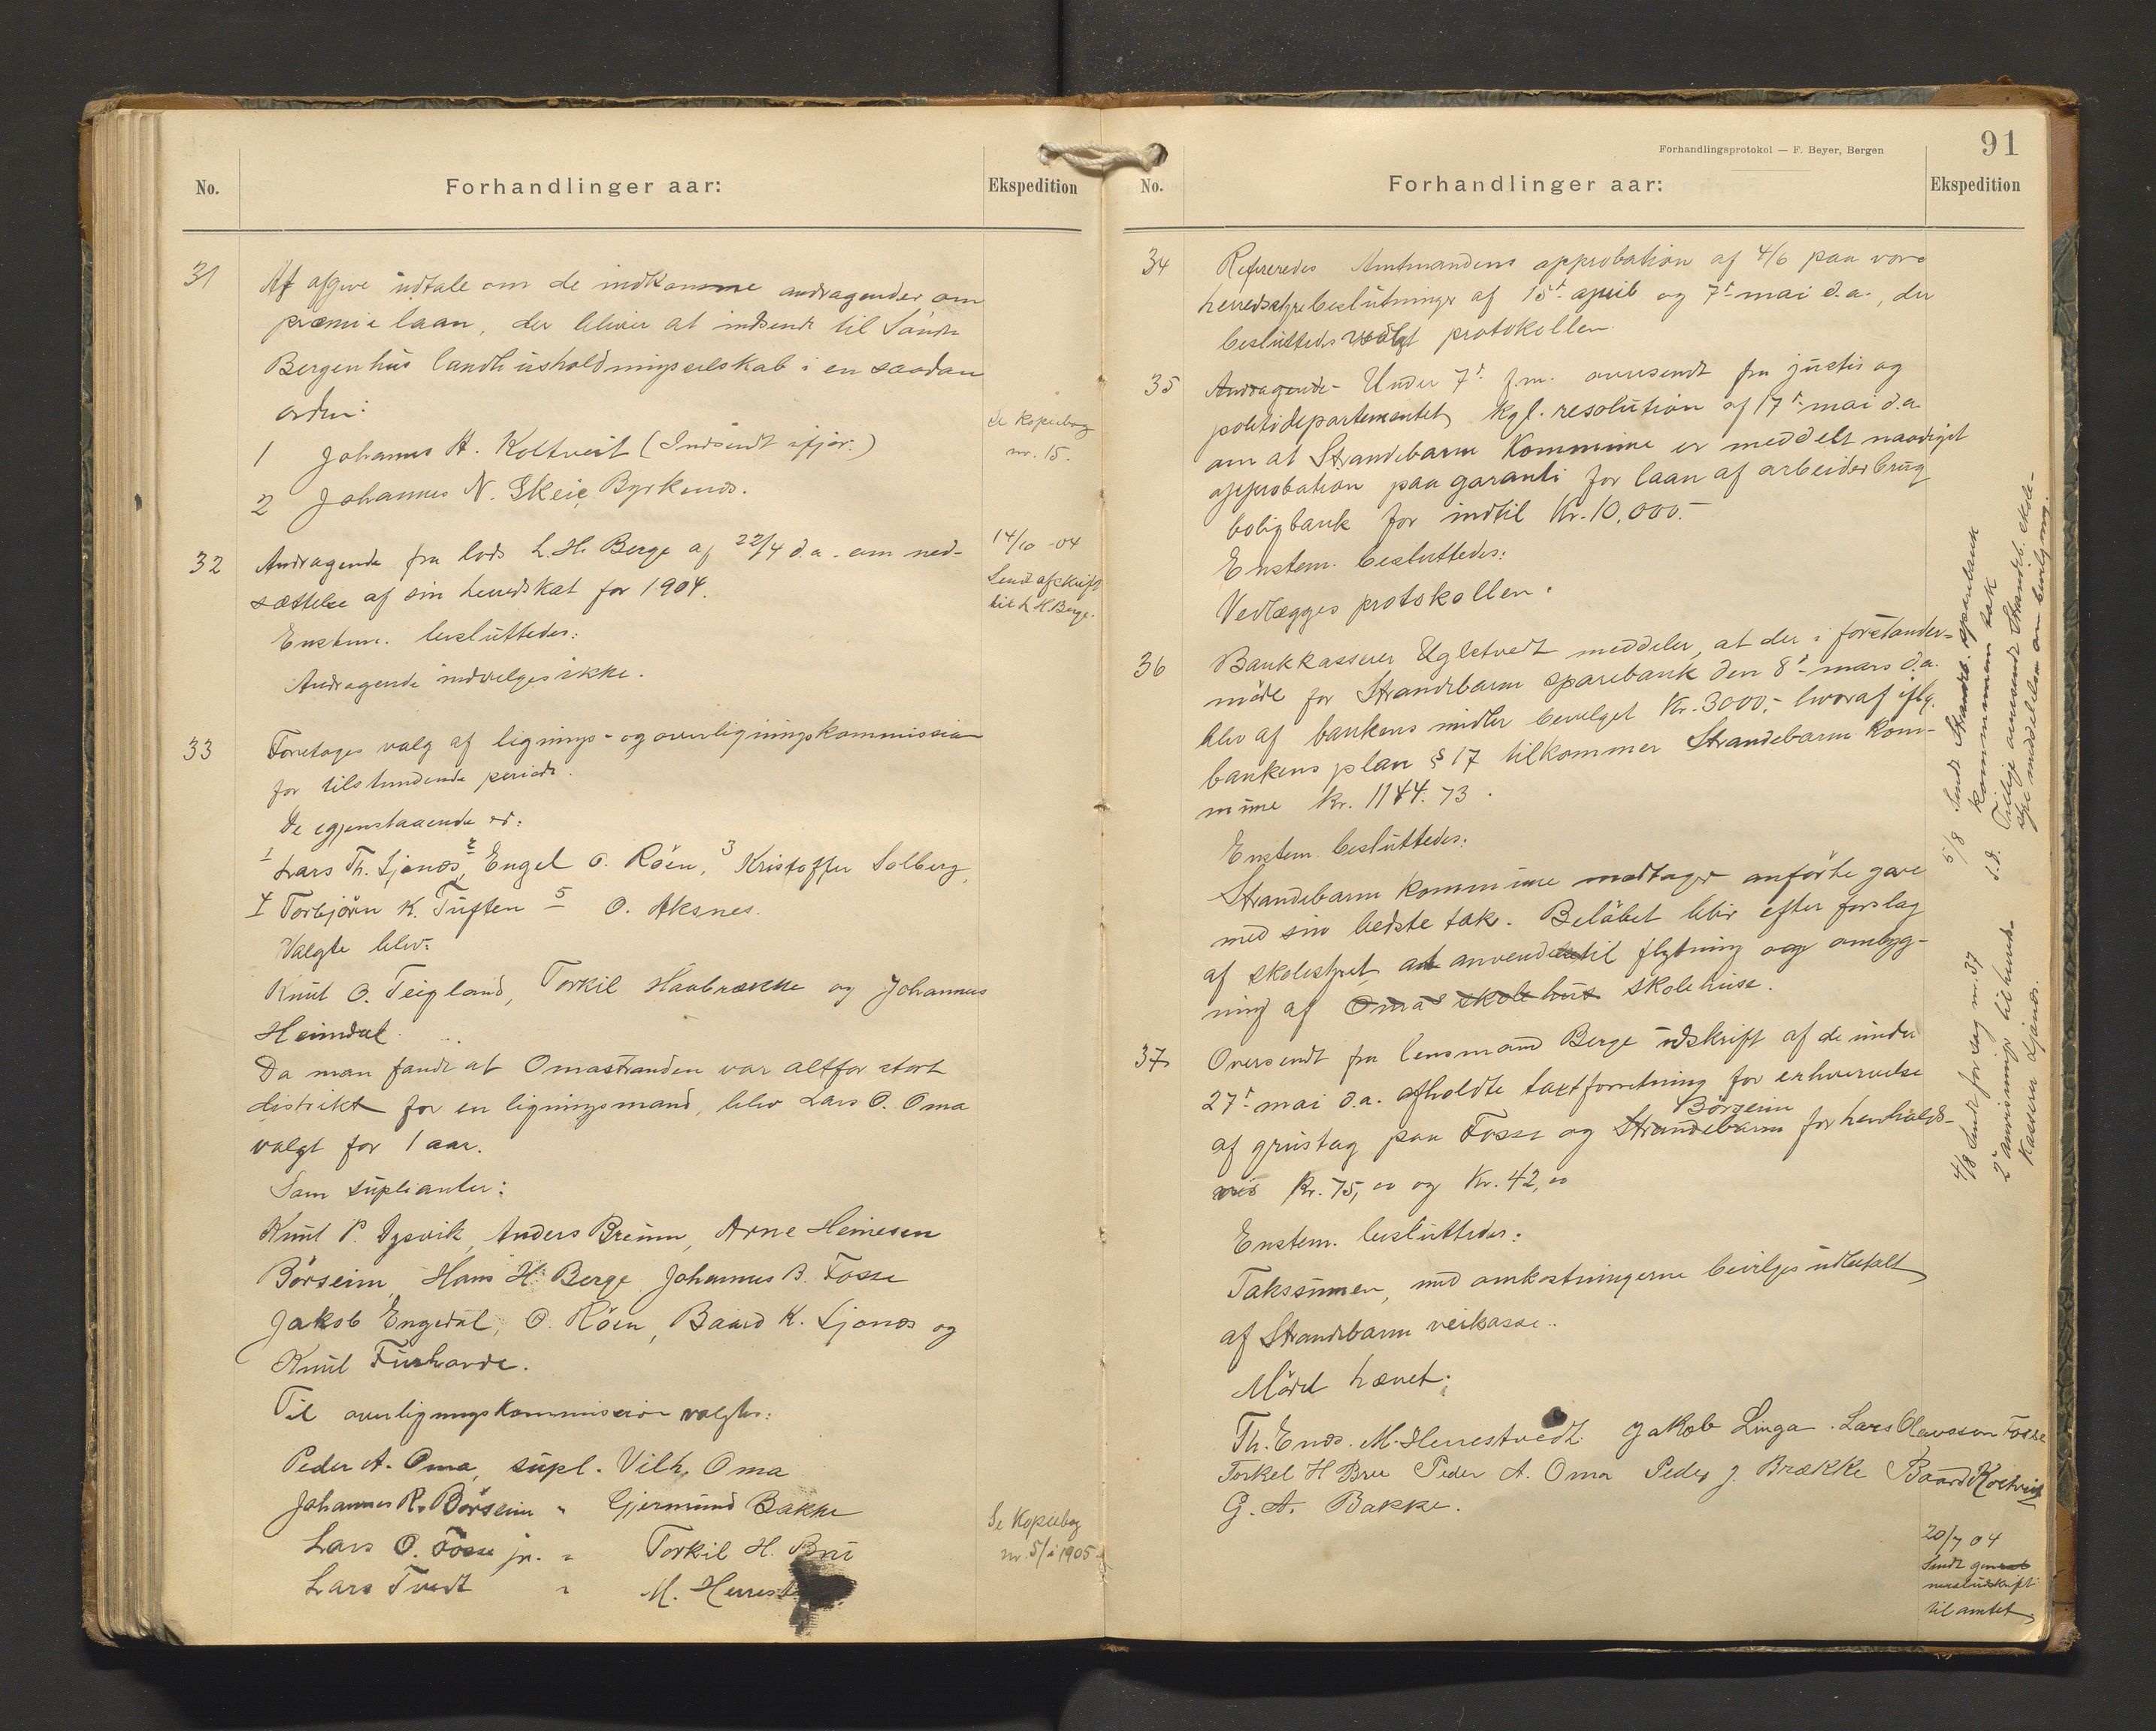 No. Forhandlinger aar: Ekspedition
31 At afgive udtale om de indkomne andragender om
præmie laan, der bliver at indsende til Söndre
Bergenhus landhusholdningsselskab i en saadan
orden:
1 Johannes H. Koltveit (Indsendt ifjor.)
2 Johannes N. Skeie, Byrkenes.
Se Kopiebog
nr. 15.
32 Andragende fra lods L. H. Berge af 22/4 d.a. om ned-
sættelse af sin herredskat for 1904.
Enstem. besluttedes:
Andragende indvelges ikke.
14/10 -04
Sendt afskrift
til L H Berge.
33 Foretages valg af lignings- og overligningskommission
for tilstundende periode.
De gjenstaaende er:
1 Lars Th. Ljonæs, 2 Engel O. Röen, 3 Kristoffer Solberg,
4 Torbjörn K. Tuften 5 O. Aksnes.
Valgte blev:
Knut O. Teigland, Torkil Haabrække og Johannes
Heimdal.
Da man fandt at Omastranden var altfor stort
distrikt for en ligningsmand, blev Lars O. Oma
valgt for 1 aar.
Som suplianter:
Knut P. Dysvik, Anders Breinn, Arne Heinesen
Börseim, Hans H. Berge, Johannes B. Fosse
Jakob Engedal, O. Röen, Baard K. Ljonæs og
Knut Furhovde.
Til overligningskommission valgtes:
Peder A. Oma, supl. Vilh. Oma
Johannes R. Börseim " Gjermund Bakke
Lars O. Fosse jr. " Torkil H. Bru
Lars Tvedt " M. Herrest
Se Kopiebog
nr. 5/i 1905
Forhandlingsprotokol — F. Beyer, Bergen
91
No. Forhandlinger aar: Ekspedition
34 Refereredes Amtmandens approbation af 4/6 paa vore
herredsstyrebeslutninger af 15d. april og 7d. mai d.a., der
besluttedes vedlagt protokollen.
35 Andragende Under 7d. f.m. oversendt fra justis og
politidepartementet kgl. resolution af 17d. mai d.a.
om at Strandebarm Kommune er meddelt naadigst
approbation paa garanti for laan af arbeiderbrug
boligbank for indtil Kr. 10,000.-
Enstem. besluttedes:
Vedlægges protokollen.
36 Bankkasserer Ugletvedt meddeler, at der i forstander-
möde for Strandebarm sparebank den 8d. mars d.a.
blev af bankens midler bevilget Kr. 3000,- hvoraf iflg.
bankens plan § 17 tilkommer Strandebarm Kom-
mune Kr. 1144.73.
Enstem. besluttedes:
Strandebarm Kommune modtager anförte gave
med sin bedste tak. Belöbet blir efter forslag
af skolestyret at anvendes til flytning og ombyg-
ning af Omas skolehus skolehuse.
5/8 Sendt Strandb. sparebank
kommunens tak
s.d. Tillige oversendt Strandb. skole-
styre meddelelse om bevilgning.
37 Oversendt fra lensmand Berge udskrift af de under
27d. mai d.a. afholdte taxtforretning for erhvervelse
af grustag paa Fosse og Strandebarm Börseim for henholds-
vis Kr. 75,00 og Kr. 42,00
Enstem. besluttedes:
Takssumen, med omkostningerne bevilges udbetalt
af Strandebarm veikasse.
Mödet hævet.
4/8 Sendt for sag nr. 37
2 anvisninger til herreds
Kasserer Ljonæs.
Th. Enæs. M. Herrestvedt. Jakob Linga. Lars Olavsson Fosse
Torkel H Bru Peder A. Oma Peder J. Brække Baard Koltveit
G. A. Bakke.
20/7 04
Sendt
til amtet